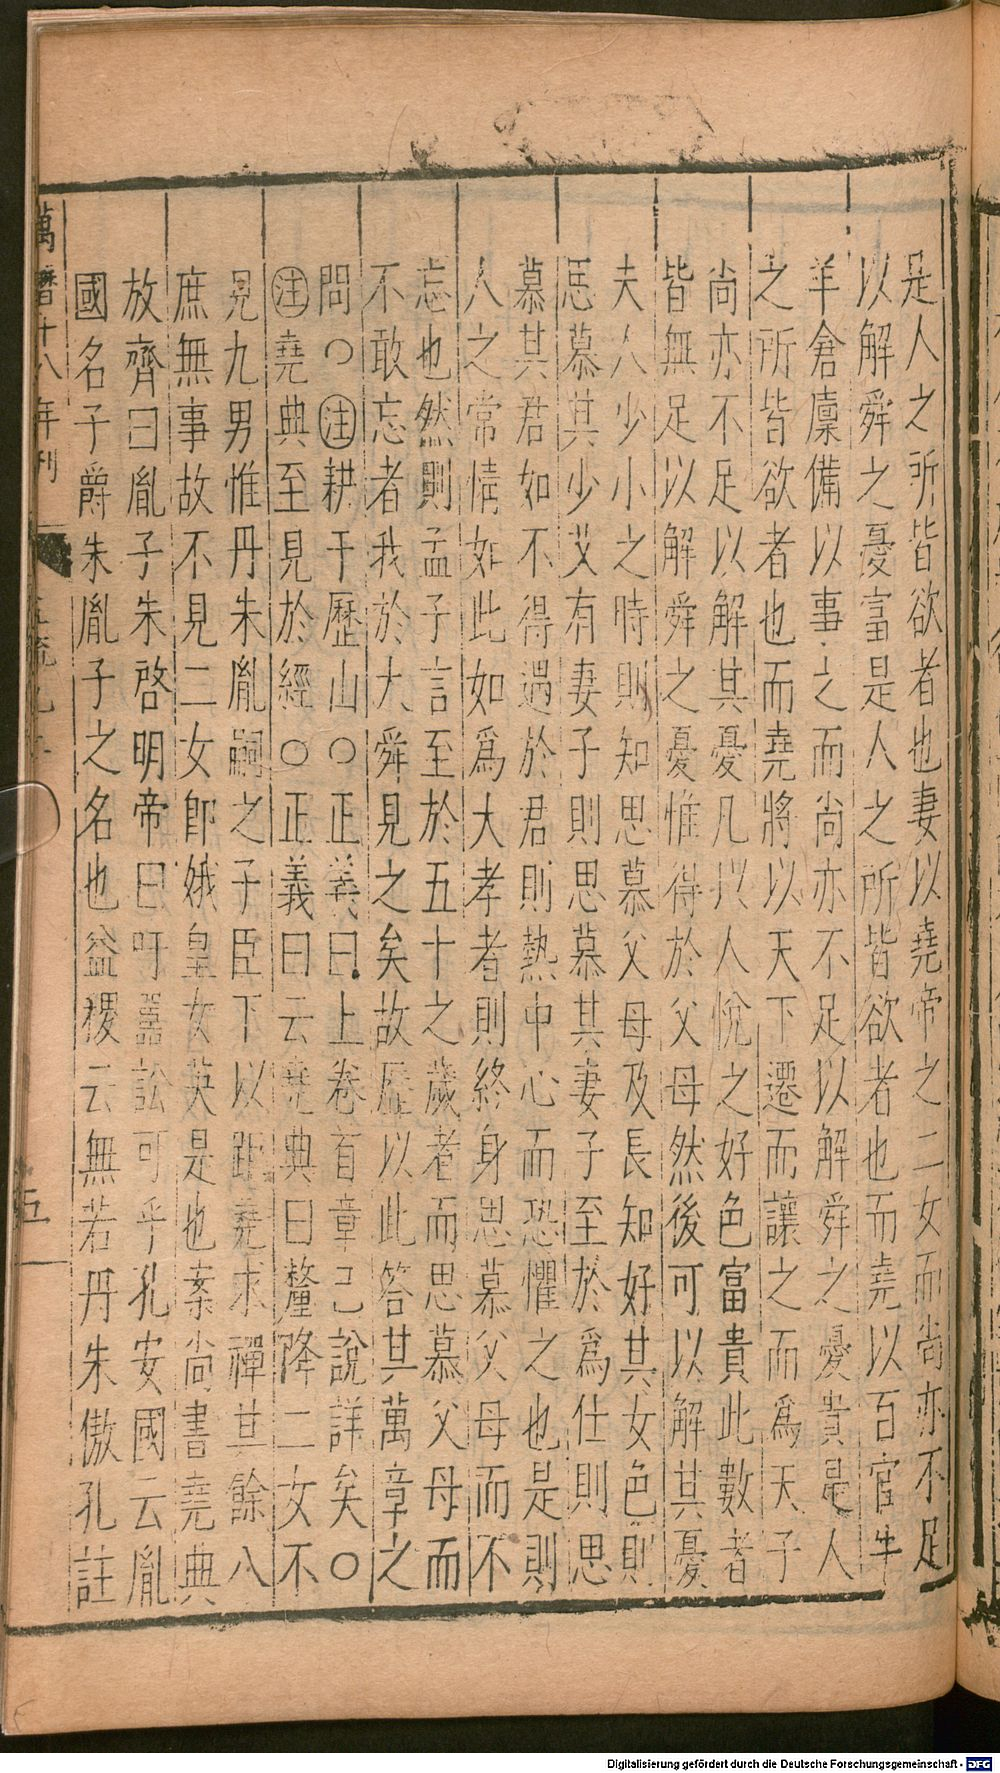 是人之所皆欲者也妻以堯帝之二女而尚亦不足
以解舜之憂富是人之所皆欲者也而堯以百官牛
羊倉廩備以事之而尚亦不足以解舜之憂貴是人
之所皆欲者也而堯將以天下遷而讓之而為天子
尚亦不足以解其憂凡以人悅之好色富貴此數者
皆無足以解舜之憂惟得於父母然後可以解其憂
夫人少小之時則知思慕父母及長知好其女色則
思慕其少艾有妻子則思慕其妻子至於為仕則思
慕其君如不得遇於君則熱中心而恐懼之也是則
人之常情如此如為大孝者則終身思慕父母而不
忘也然則孟子言至於五十之歲者而思慕父母而
不敢忘者我於大舜見之矣故歷以此答其萬章之
問○注耕于歷山○正義曰上卷首章已說詳矣○
注堯典至見於經○正義曰云堯典曰釐降二女不
見九男惟丹朱胤嗣之子臣下以距堯求禪其餘八
庶無事故不見二女即娥皇女英是也案尚書堯典
放齊曰胤子朱啓明帝曰吁嚚訟可乎孔安國云胤
國名子爵朱胤子之名也益稷云無若丹朱傲孔註
萬曆十八年刊
五
Digitalisierung gefördert durch die Deutsche Forschungsgemeinschaft - DFG